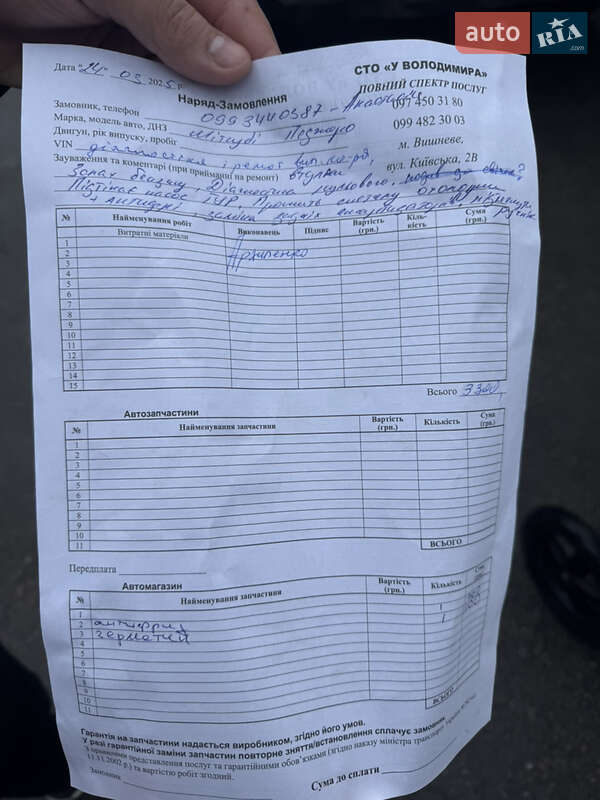 auto RIA .com
Дата "24" 03 2025 р.
СТО «У ВОЛОДИМИРА»
Наряд-Замовлення
ПОВНИЙ СПЕКТР ПОСЛУГ
Замовник, телефон 0993440387 -
097 450 31 80
Марка, модель авто, ДНЗ Міцубі Паджеро
099 482 30 03
Двигун, рік випуску, пробіг
м. Вишневе.
VIN діагностика і ремонт
вул. Київська, 2В
Зауваження та коментарі (при прийманні на ремонт)
Запах бензину. Діагностика
Підтікає насос ГУР. Промить систему
антифриз. заміна
№ Найменування робіт Виконавець Підпис Вартість (грн.) Кількість Сума (грн.)
Витратні матеріали
1
2
3
4
5
6
7
8
9
10
11
12
13
14
15
Всього 3300
Автозапчастини
№ Найменування запчастини Вартість (грн.) Кількість Сума (грн.)
1
2
3
4
5
6
7
8
9
10
11 ВСЬОГО
Передплата
Автомагазин
№ Найменування запчастини Вартість (грн.) Кількість Сума
1
2 антифриз 1
3 герметик 1
4
5
6
7
8
9
10
11 ВСЬОГО
Гарантія на запчастини надається виробником, згідно його умов.
У разі гарантійної заміни запчастин повторне зняття/встановлення сплачує замовник
З правилами представлення послуг та гарантійними обов'язками (згідно наказу міністра транспорт
11.11.2002 р.) та вартістю робіт згодний.
Замовник
Сума до сплати